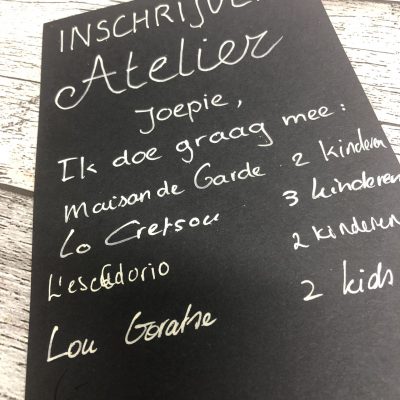 INSCHRIJVEN
Atelier
Joepie,
Ik doe graag mee:
Maison de Garde 2 kinderen
Lo Cretsou 3 kinderen
L'escadorio 2 kinderen
Lou 2 kids